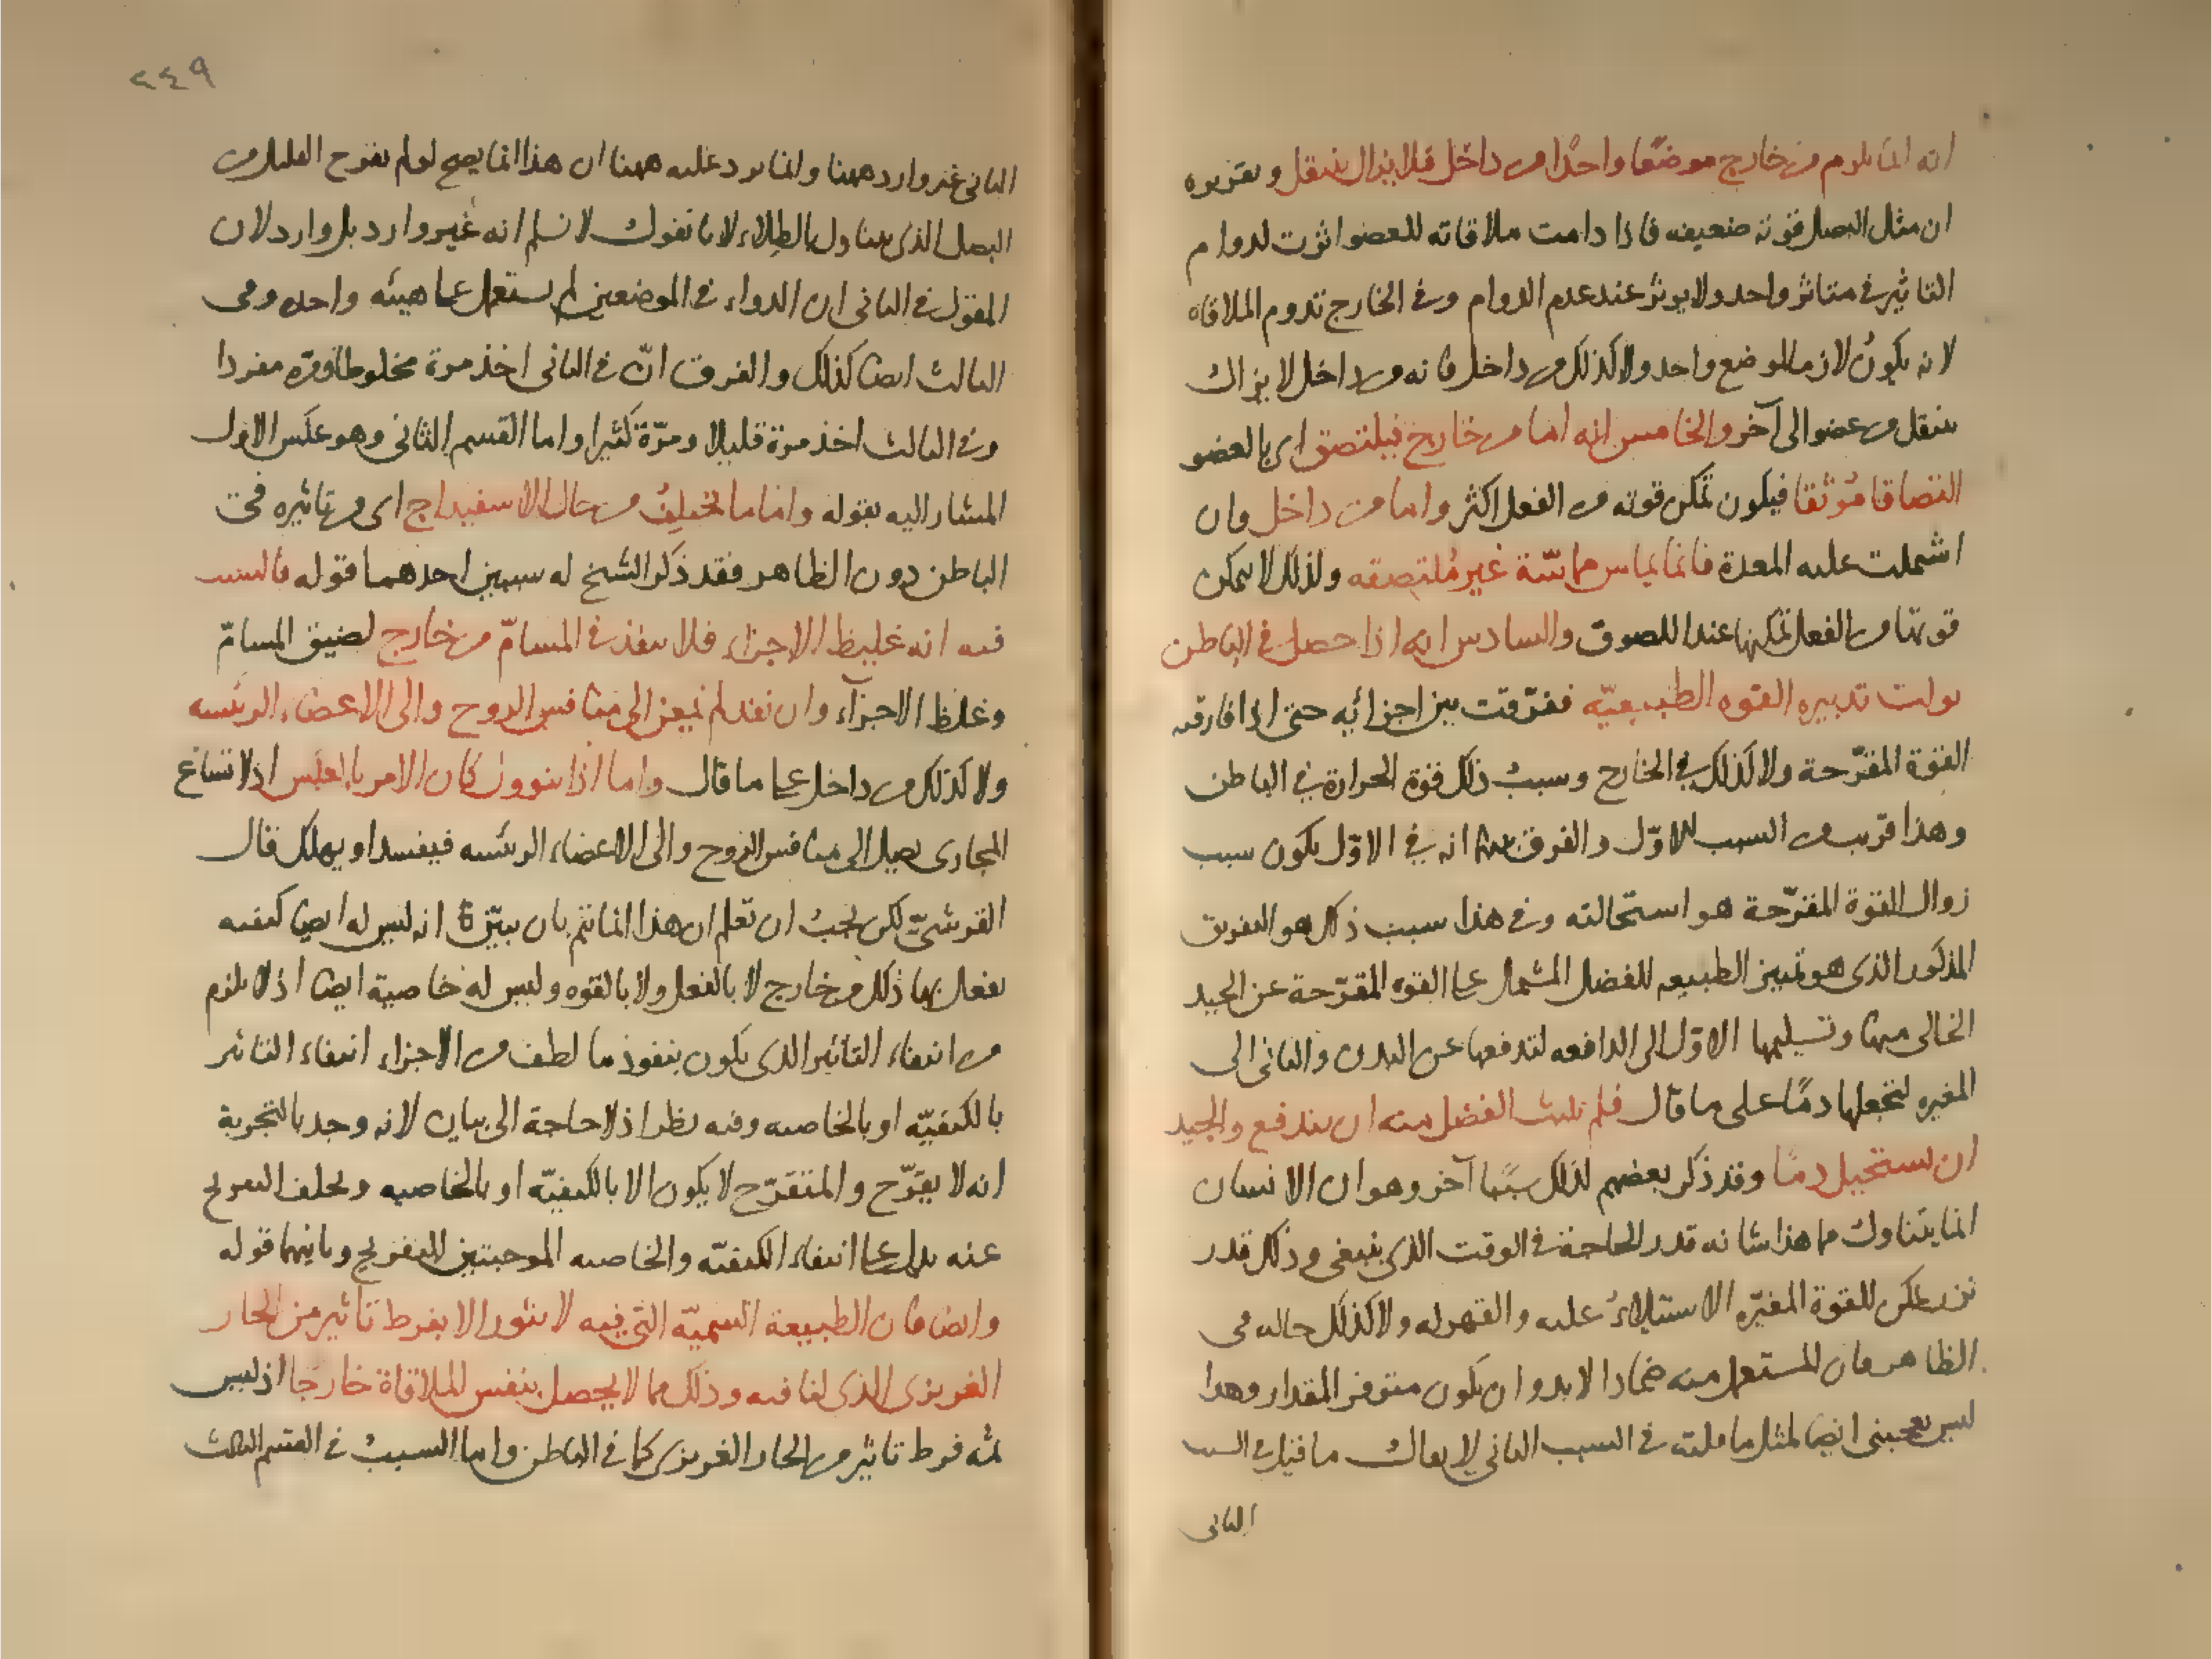 انه انما يلزم من خارج موضعا واحدا ومن داخل فلا يزال ينتقل وتقريره
ان مثل البصل قوته ضعيفه فاذا دامت ملاقاته للعضو اثرت لدوام
التاثير في متاثر واحد ولا يوثر عند عدم الدوام وفي الخارج تدوم الملاقاه
لانه يكون لازما لموضع واحد ولا كذلك من داخل فانه من داخل لا يزال
ينتقل من عضو الى آخر والخامس انه اما من خارج فيلتصق اى بالعضو
التصاقا مُوثقا فيكون تمكن قوته من الفعل اكثر واما من داخل وان
اشتملت عليه المعدة فانما يماس مماسّة غير مُلتصقه ولذلك لا يمكن
قوتها من الفعل تمكنها عند اللصوق والسادس انه اذا حصل في الباطن
تولت تدبيره القوه الطبيعيّه ففرّقت بين اجزائه حتى اذا فارقته
القوة المقرّحة ولا كذلك في الخارج وسبب ذلك قوة الحرارة في الباطن
وهذا قريب من السبب الاوّل والفرق بينهما انه في الاوّل يكون سبب
زوال القوة المقرّحة هو استحالته وفي هذا سبب ذلك هو التفريق
المذكور الذى هو تمييز الطبيعه للفضل المشتمل على القوه المقرّحة عن الجيد
الخالى منها وتسليمها الاوّل الى الدافعه لتدفعها عن البدن والثانى الى
المغيره لتجعلها دمًا على ما قال فلم يلبث الفضل منه ان يندفع والجيد
ان يستحيل دمًا وقد ذكر بعضهم لذلك سببًا آخر وهو ان الانسان
انما يتناول مما هذا شانه قدر الحاجة في الوقت الذى ينبغى وذلك قدر
نزر يمكن للقوة المغيّره الاستيلاءُ عليه والقهر له ولا كذلك حاله في
الظاهر فان المستعمل منه ضمادا لا بد وان يكون متوفر المقدار وهذا
ليس يعجبنى ايضا لمثل ما قلته في السبب الثانى لا يقال ما قيل في السبب
الثانى
٢٤٩
الثانى غير وارد ههنا وانما يرد عليه ههنا ان هذا انما يصح لو لم يقرح القليل من
البصل الذى يتناول بالطلاء لانا نقول لا نسلم انه غير وارد بل وارد لان
المقول في الثانى ان الدواء في الموضعين لم يستعمل على هيئه واحده وفى
الثالث ايضا كذلك والفرق انّ في الثانى اخذ مرة مخلوطا ومرّه مفردا
وفي الثالث اخذ مرة قليلا ومرّة كثيرا واما القسم الثانى وهو عكس الاول
المشار اليه بقوله واما ما يختلف من حال الاسفيداج اى من تاثيره في
الباطن دون الظاهر فقد ذكر الشيخ له سببين احدهما قوله فالسبب
فيه انه غليظ الاجزاء فلا ينفذ في المسامّ من خارج لضيق المسامّ
وغلظ الاجزآء وان نفذ لم يمعن الى منافس الروح والى الاعضاء الرئيسه
ولا كذلك من داخل على ما قال واما اذا تنوول كان الامر بالعكس اذ لاتساع
المجارى يصل الى منافس الروح والى الاعضاء الرئيسه فيفسد او يهلك قال
القرشىّ لكن يجب ان تعلم ان هذا انما يتم بان يبيّن انه ليس له ايضا كيفيه
يفعل بها ذلك من خارج لا بالفعل ولا بالقوه وليس له خاصية ايضا اذ لا يلزم
من انتفاء التاثير الذى يكون بنفوذ ما لطف من الاجزاء انتفاء التاثير
بالكيفيّه او بالخاصيه وفيه نظر اذ لا حاجة الى بيان لانه وجد بالتجربة
انه لا يقرّح والمتقرّح لا يكون الا بالكيفيّه او بالخاصيه وتخلف التقريح
عنه يدل على انتفاء الكيفيّه والخاصيه الموجبتين للتقريح وثانيهما قوله
وايضا فان الطبيعة السميّه التى فيه لا يثور الا بفرط تاثير من الحار
الغريزى الذى لنا فيه وذلك مما لا يحصل بنفس الملاقاة خارجا اذ ليس
ثمّه فرط تاثير من الحار الغريزى كما في الباطن واما السبب في القسم الثالث